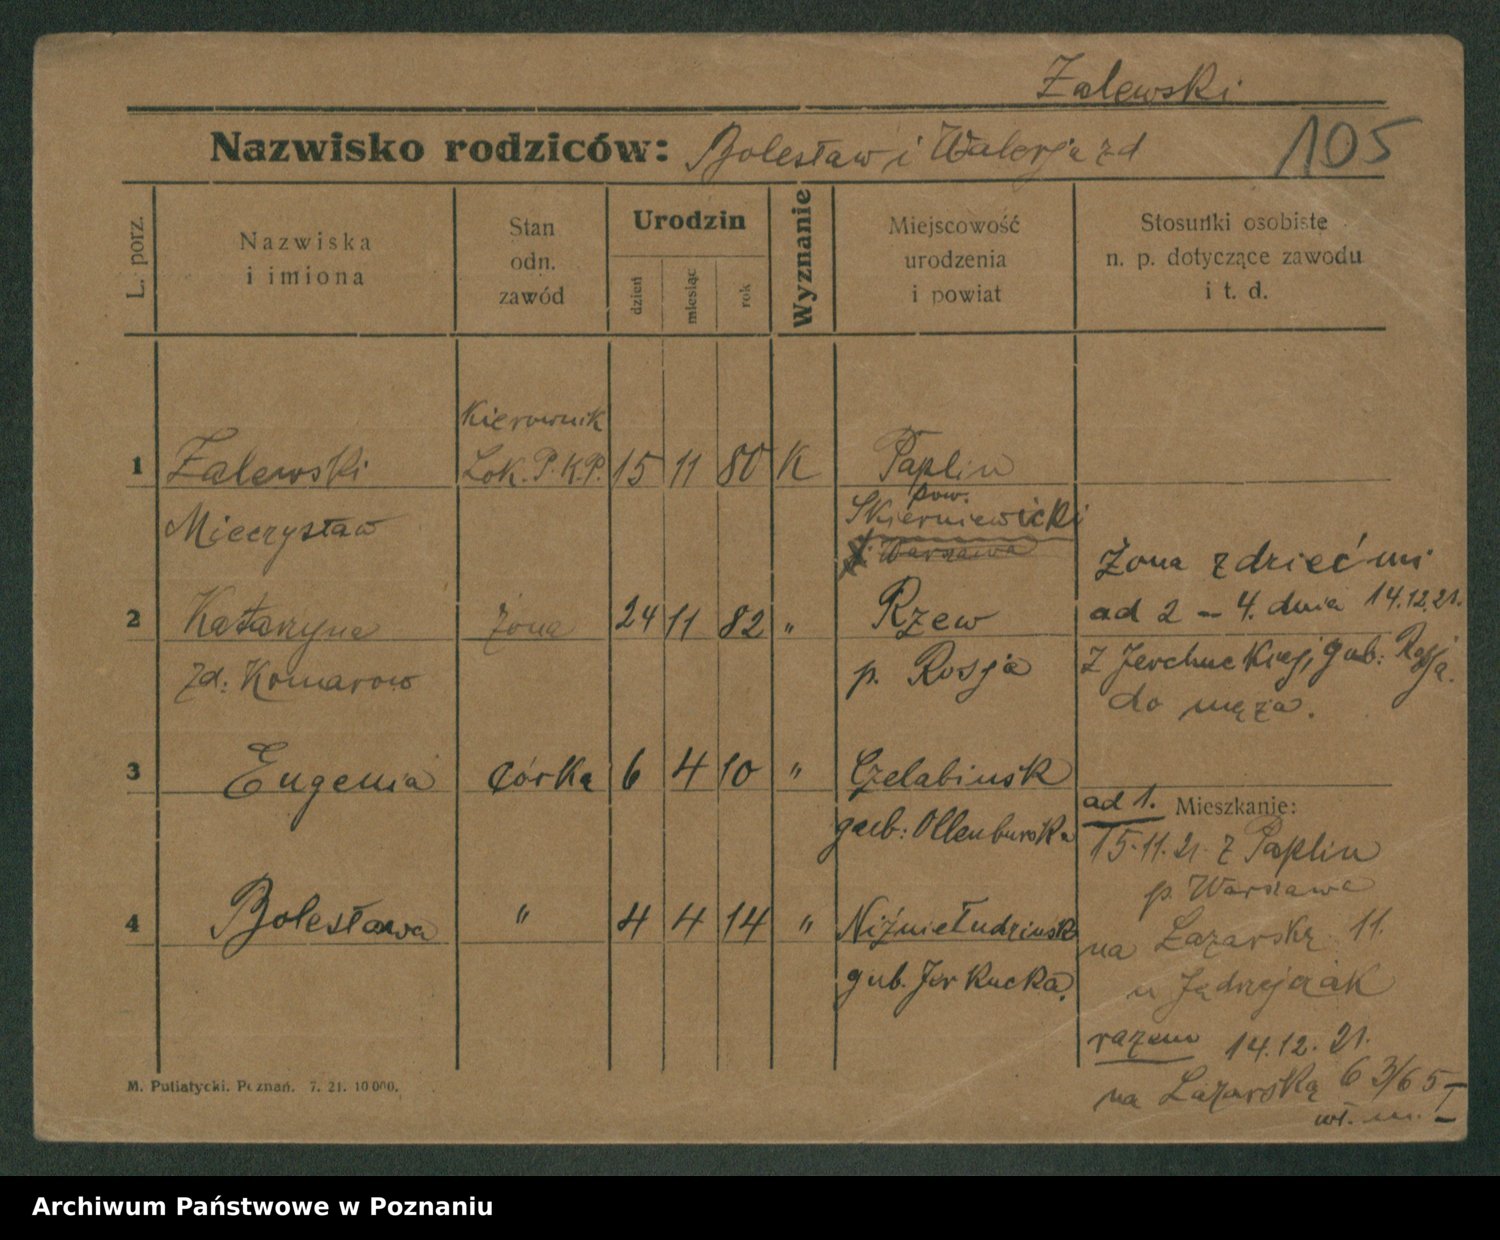 Zalewski
Nazwisko rodziców: Bolesław i Walerja zd
105
L. porz.
Nazwiska
i imiona
Stan
odn.
zawód
Urodzin
dzień
miesiąc
rok
Wyznanie
Miejscowość
urodzenia
i powiat
Stosunki osobiste
n. p. dotyczące zawodu
i t. d.
Kierownik
1 Zalewski Lok. P.K.P. 15 11 80 K Paplin
Mieczysław
pow.
Skierniewicki
p. Warszawa
Żona z dziećmi
2 Katarzyna żona 24 11 82 " Rzew
ad 2 – 4. dnia 14.12.21.
zd: Komarow
p. Rosja
gub: Rosja.
do męża.
3 Eugenia córka 6 4 10 " Czelabinsk
gub: Ollenburska
ad 1. Mieszkanie:
15.11.21. z Paplin
p. Warszawa
4 Bolesława " 4 4 14 " Niżniełudzinsk
gub. Jerkucka.
na Łazarską 11.
u Jądrzejczak
razem 14.12.21.
na Łazarską 63/65 I
M. Putiatycki. Poznań. 7. 21. 10 000.
Archiwum Państwowe w Poznaniu